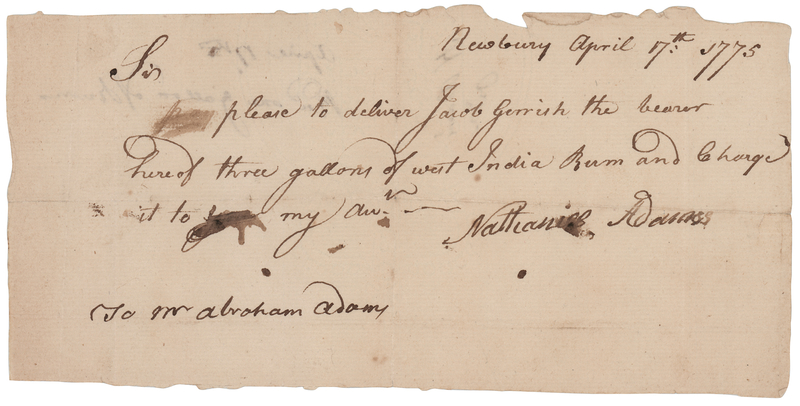 Newbury April 17th 1775
Sir
please to deliver Jacob Gerrish the bearer
hereof three gallons of west India Rum and Charge
it to my
Nathaniel Adams
To Mr Abraham Adams